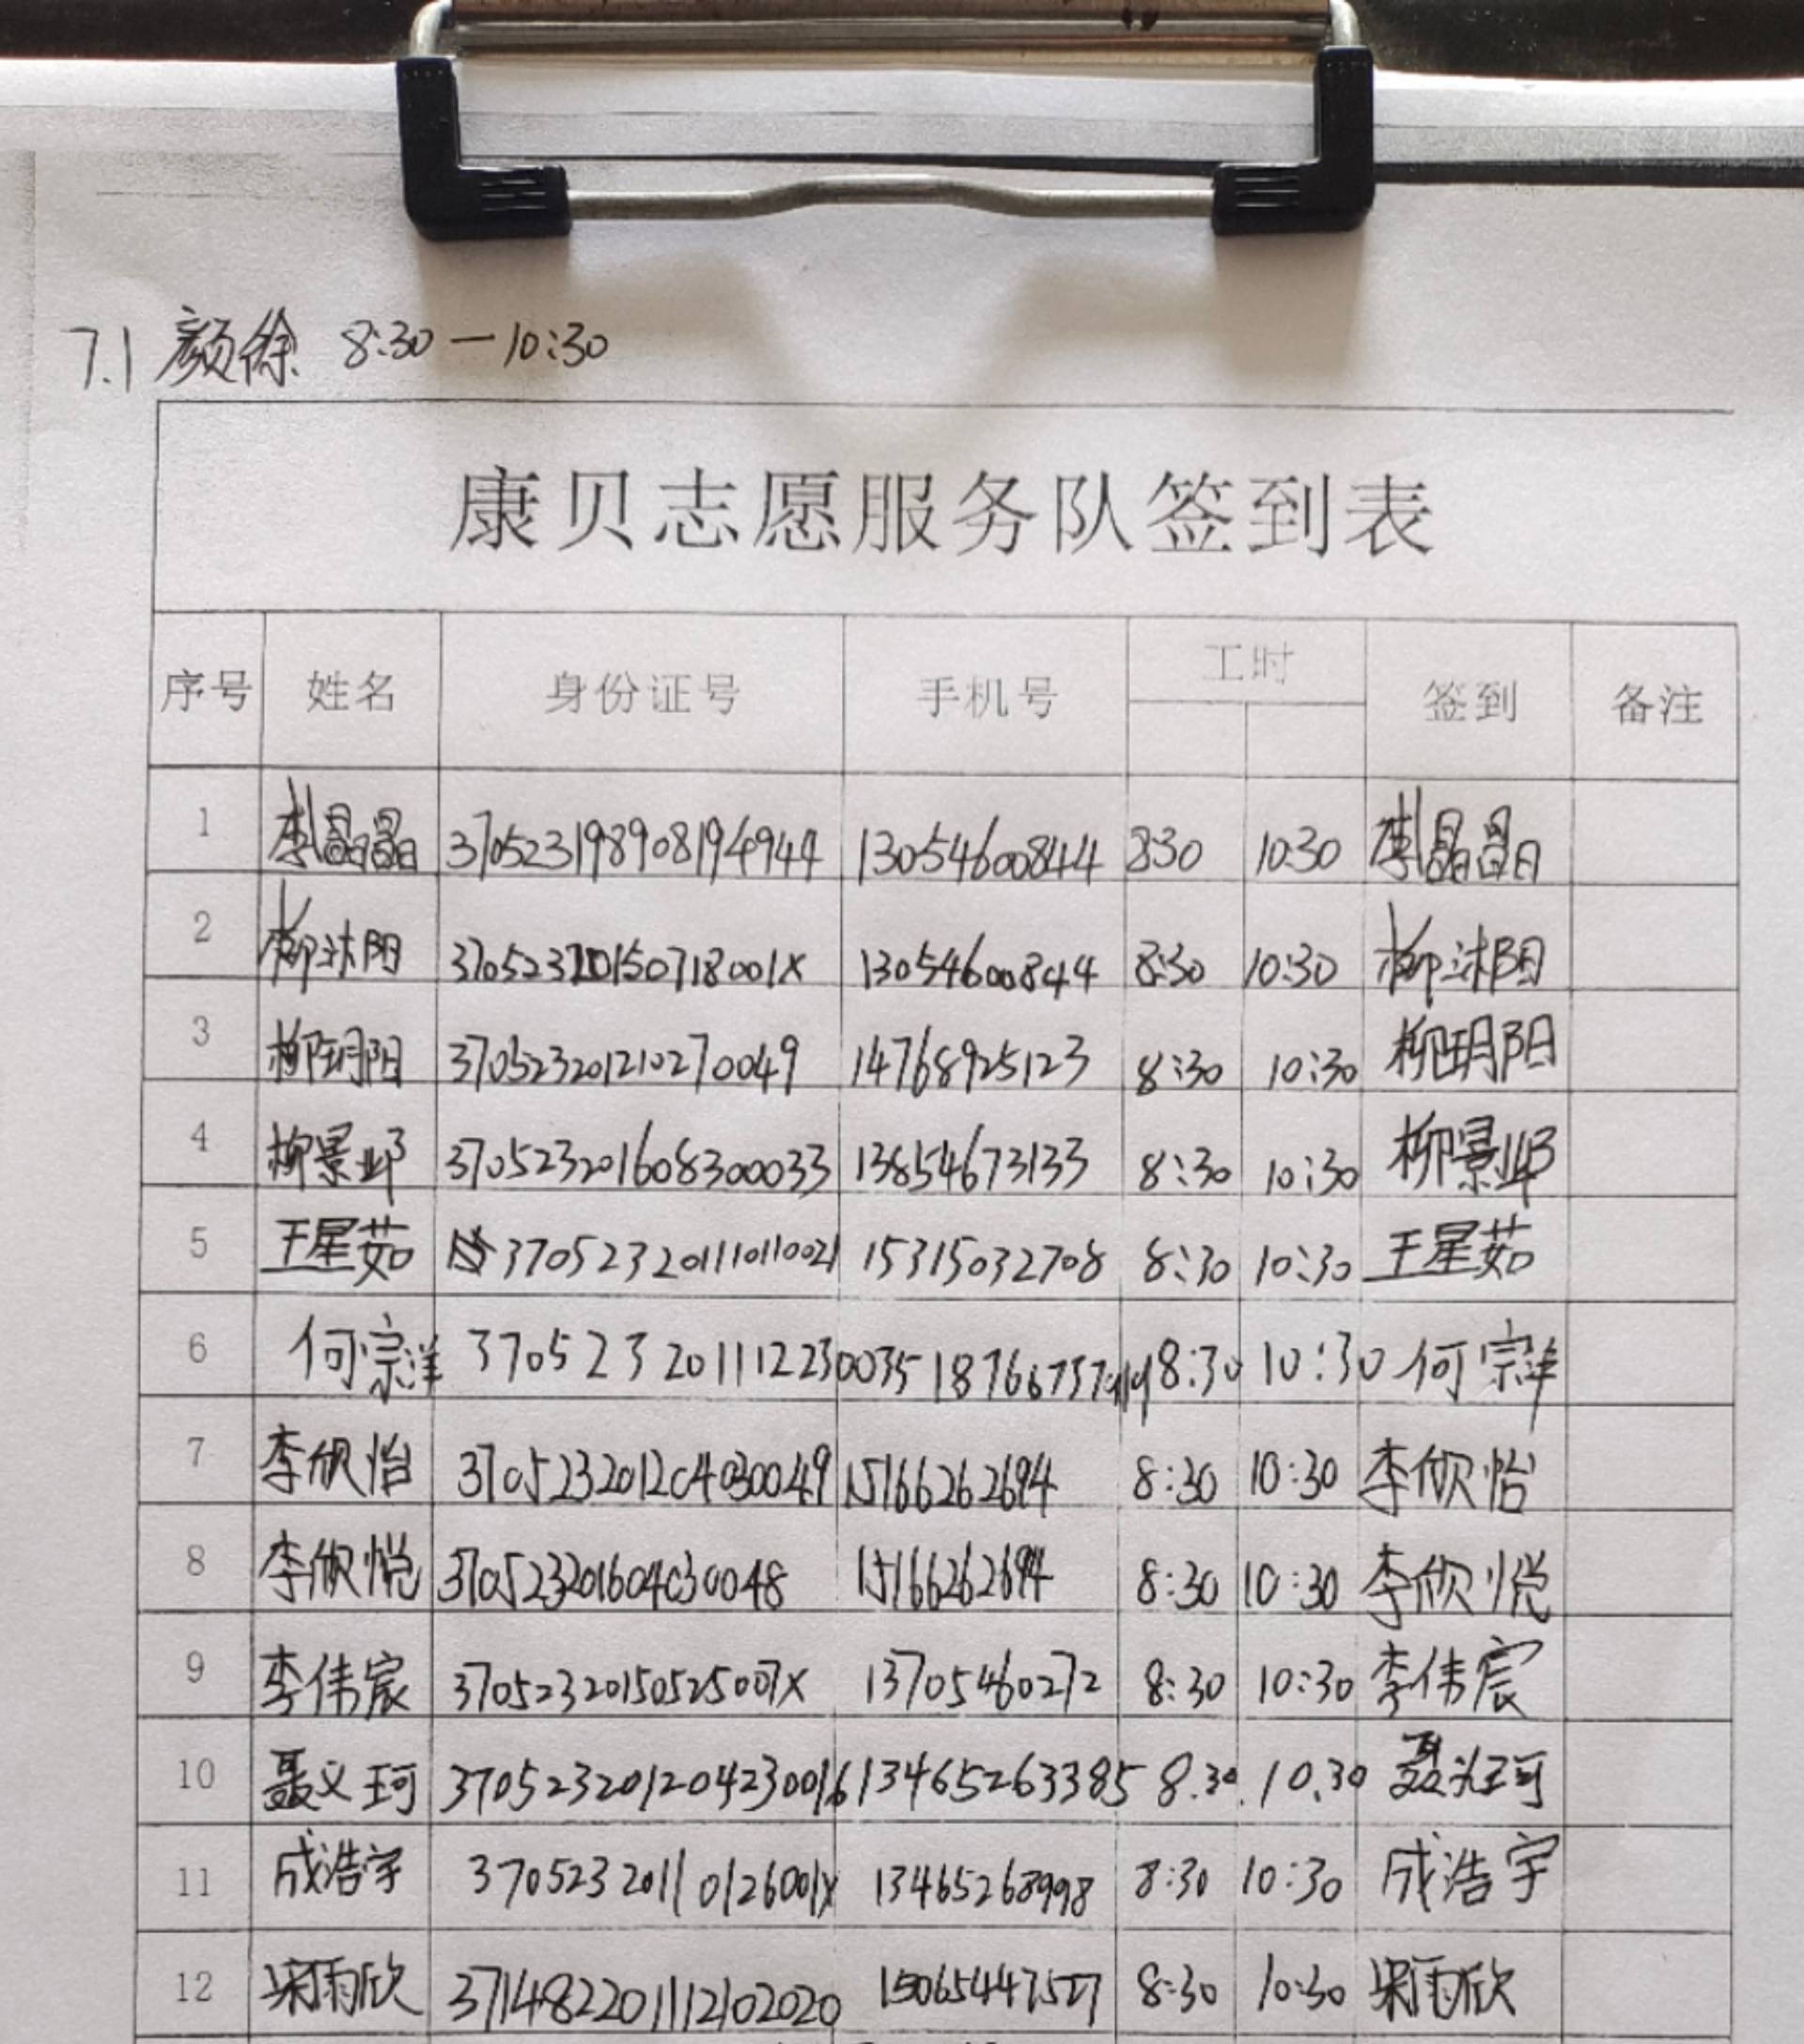 7.1 颜徐 8:30—10:30
康贝志愿服务队签到表
序号 姓名 身份证号 手机号 工时 签到 备注
1 李晶晶 370523198908194944 13054600844 8:30 10:30 李晶晶
2 柳沐阳 37052320150718001X 13054600844 8:30 10:30 柳沐阳
3 柳玥阳 370523201210270049 14768925123 8:30 10:30 柳玥阳
4 柳景邺 370523201608300033 13854673133 8:30 10:30 柳景邺
5 王星茹 370523201110110021 15315032708 8:30 10:30 王星茹
6 何宗洋 370523201112230035 8:30 10:30 何宗洋
7 李欣怡 370523201204030049 15166262694 8:30 10:30 李欣怡
8 李欣悦 370523201604030048 15166262694 8:30 10:30 李欣悦
9 李伟宸 37052320150525007X 13705460272 8:30 10:30 李伟宸
10 聂义珂 370523201204230016 13465263385 8:30 10:30 聂义珂
11 成浩宇 37052320110126001X 13465268998 8:30 10:30 成浩宇
12 梁雨欣 371482201112102020 15065447527 8:30 10:30 梁雨欣